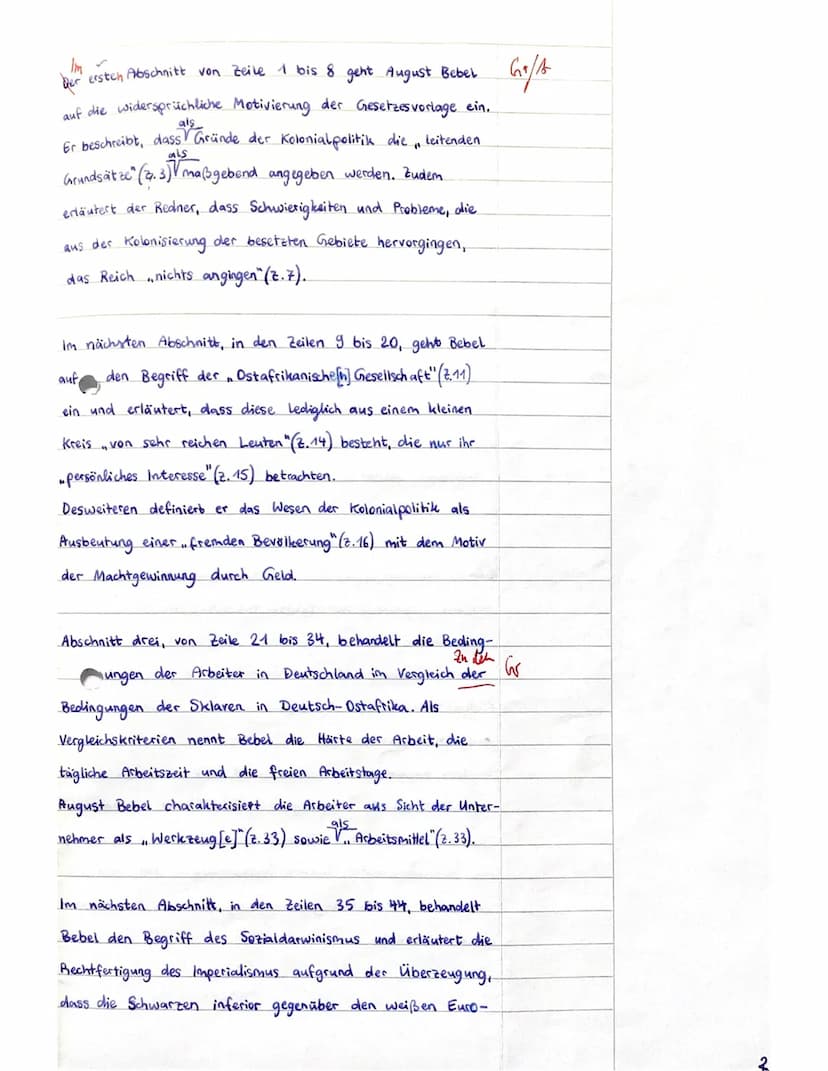 Im
Der ersten Abschnitt von Zeile 1 bis 8 geht August Bebel Gr/A
auf die widersprüchliche Motivierung der Gesetzesvorlage ein.
als
Er beschreibt, dass Gründe der Kolonialpolitik die „leitenden
als
Grundsätze" (Z. 3) maßgebend angegeben werden. Zudem
erläutert der Redner, dass Schwierigkeiten und Probleme, die
aus der Kolonisierung der besetzten Gebiete hervorgingen,
das Reich „nichts angingen" (Z. 7).
Im nächsten Abschnitt, in den Zeilen 9 bis 20, geht Bebel
auf den Begriff der „Ostafrikanische[n] Gesellschaft" (Z. 11)
ein und erläutert, dass diese lediglich aus einem kleinen
Kreis „von sehr reichen Leuten" (Z. 14) besteht, die nur ihr
„persönliches Interesse" (Z. 15) betrachten.
Desweiteren definiert er das Wesen der Kolonialpolitik als
Ausbeutung einer „fremden Bevölkerung" (Z. 16) mit dem Motiv
der Machtgewinnung durch Geld.
Abschnitt drei, von Zeile 21 bis 34, behandelt die Beding-
zu den
ungen der Arbeiter in Deutschland im Vergleich der Gr
Bedingungen der Sklaven in Deutsch-Ostafrika. Als
Vergleichskriterien nennt Bebel die Härte der Arbeit, die
tägliche Arbeitszeit und die freien Arbeitstage.
August Bebel charakterisiert die Arbeiter aus Sicht der Unter-
als
nehmer als „Werkzeug[e]" (Z. 33) sowie „Arbeitsmittel" (Z. 33).
Im nächsten Abschnitt, in den Zeilen 35 bis 44, behandelt
Bebel den Begriff des Sozialdarwinismus und erläutert die
Rechtfertigung des Imperialismus aufgrund der Überzeugung,
dass die Schwarzen inferior gegenüber den weißen Euro-
2